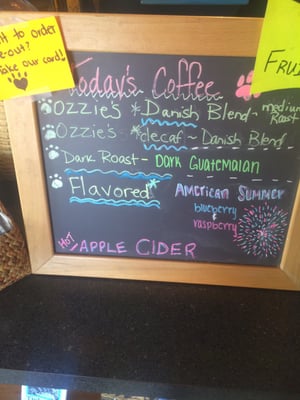 nt to order
e-out?
Take our card!
FRU
Today's Coffee
Ozzie's *Danish Blend- *medium Roast
Ozzie's- *decaf- Danish Blend
Dark Roast- Dark Guatemalan
Flavored* American Summer
blueberry
&
raspberry
Hot APPLE CIDER